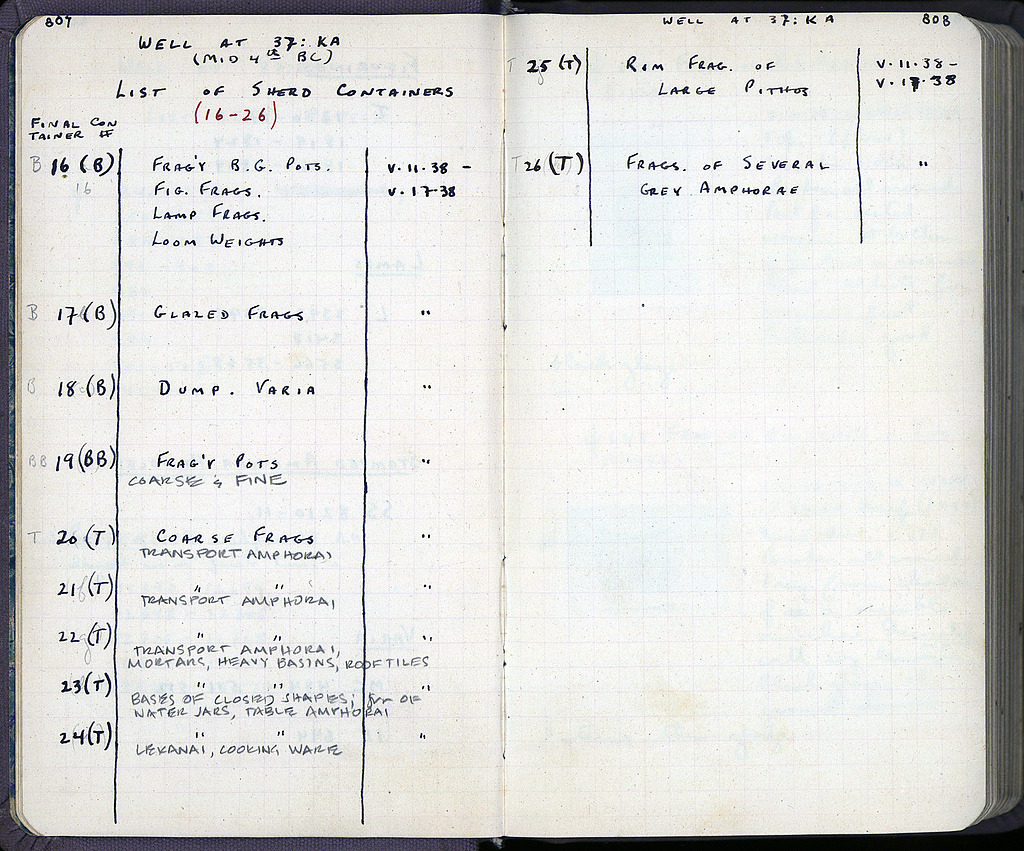 807
WELL AT 37: KA
(MID 4th BC)
LIST OF SHERD CONTAINERS
(16-26)
FINAL CON
TAINER #
B 16 (B) FRAG'Y B.G. POTS. V.11.38 -
16 FIG. FRAGS. V.17.38
LAMP FRAGS.
LOOM WEIGHTS
B 17 (B) GLAZED FRAGS "
B 18 (B) DUMP. VARIA "
BB 19 (BB) FRAG'Y POTS "
COARSE & FINE
T 20 (T) COARSE FRAGS "
TRANSPORT AMPHORAI
21 (T) " " "
TRANSPORT AMPHORAI
22 (T) " " "
TRANSPORT AMPHORAI,
MORTARS, HEAVY BASINS, ROOFTILES
23 (T) " " "
BASES OF CLOSED SHAPES; frr OF
WATER JARS, TABLE AMPHORAI
24 (T) " " "
LEKANAI, COOKING WARE
WELL AT 37: KA 808
T 25 (T) RIM FRAG. OF V.11.38 -
LARGE PITHOS V.17.38
T 26 (T) FRAGS. OF SEVERAL "
GREY AMPHORAE